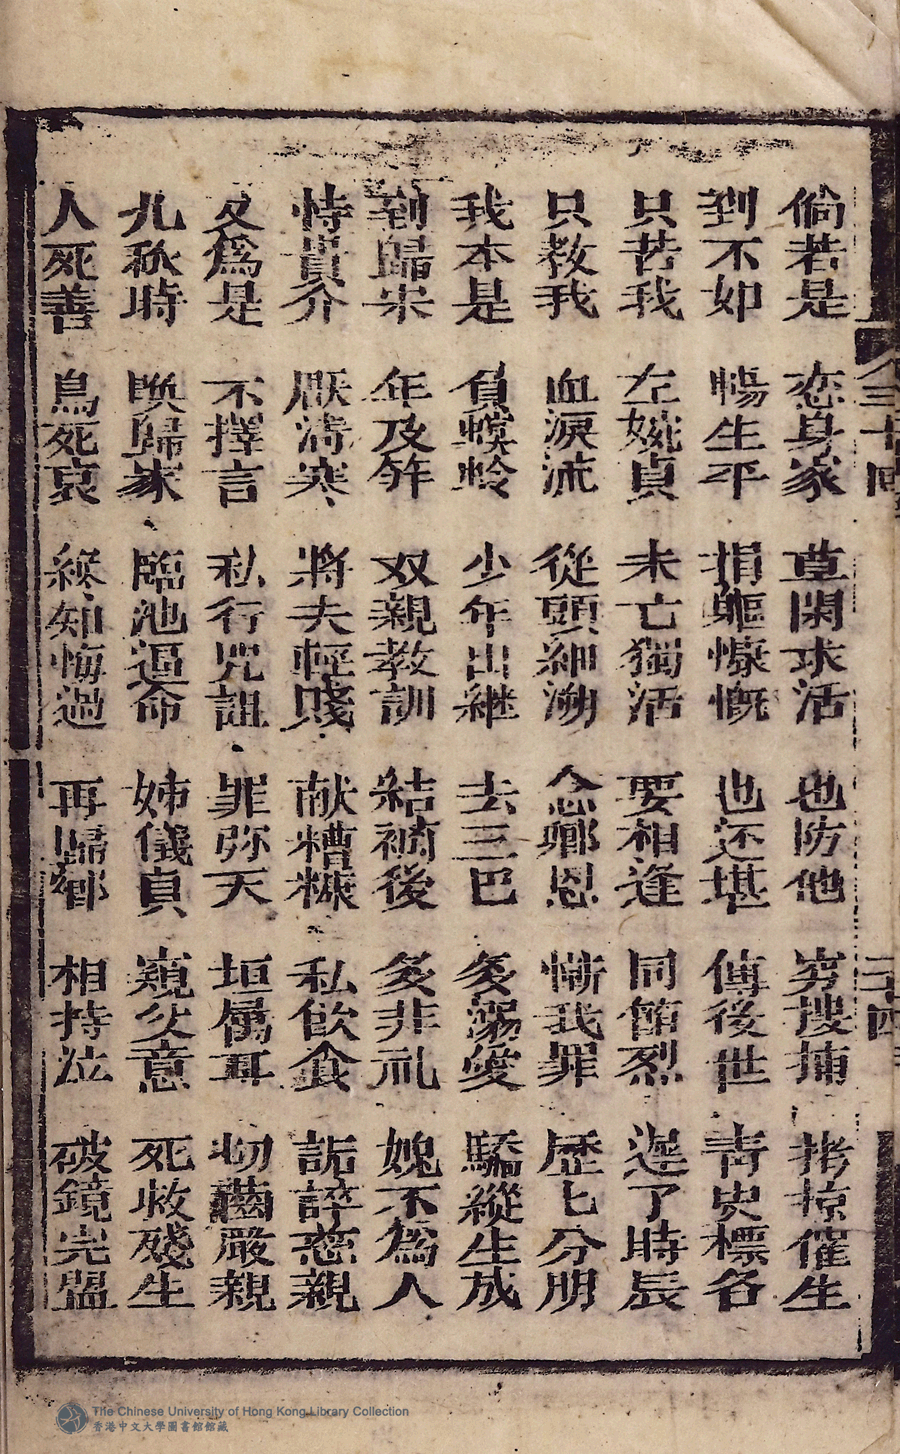 倘若是　恋身家　草閑求活　也防他　穷搜捕　拷掠催生
到不如　暢生平　捐軀慷慨　也还堪　傳後世　青史標名
只苦我　左婉貞　未亡獨活　要相逢　同節烈　遲了時辰
只教我　血淚流　從頭細溯　念鄉恩　慚我罪　歷七分朋
我本是　負螟蛉　少年出継　去三巴　多溺愛　驕縱生成
到歸宗　年及笄　双親教訓　結褵後　多非礼　媿不為人
恃貴介　厭清寒　將夫輕賤　献糟糠　私飲食　詬誶慈親
又為是　不擇言　私行咒詛　罪弥天　垣属耳　切齒嚴親
九秋時　喚歸家　臨池逼命　姊儀貞　窺父意　死救殘生
人死善　鳥死哀　終知悔過　再歸鄉　相持泣　破鏡完盟
三十回
二十四
The Chinese University of Hong Kong Library Collection
香港中文大學圖書館館藏